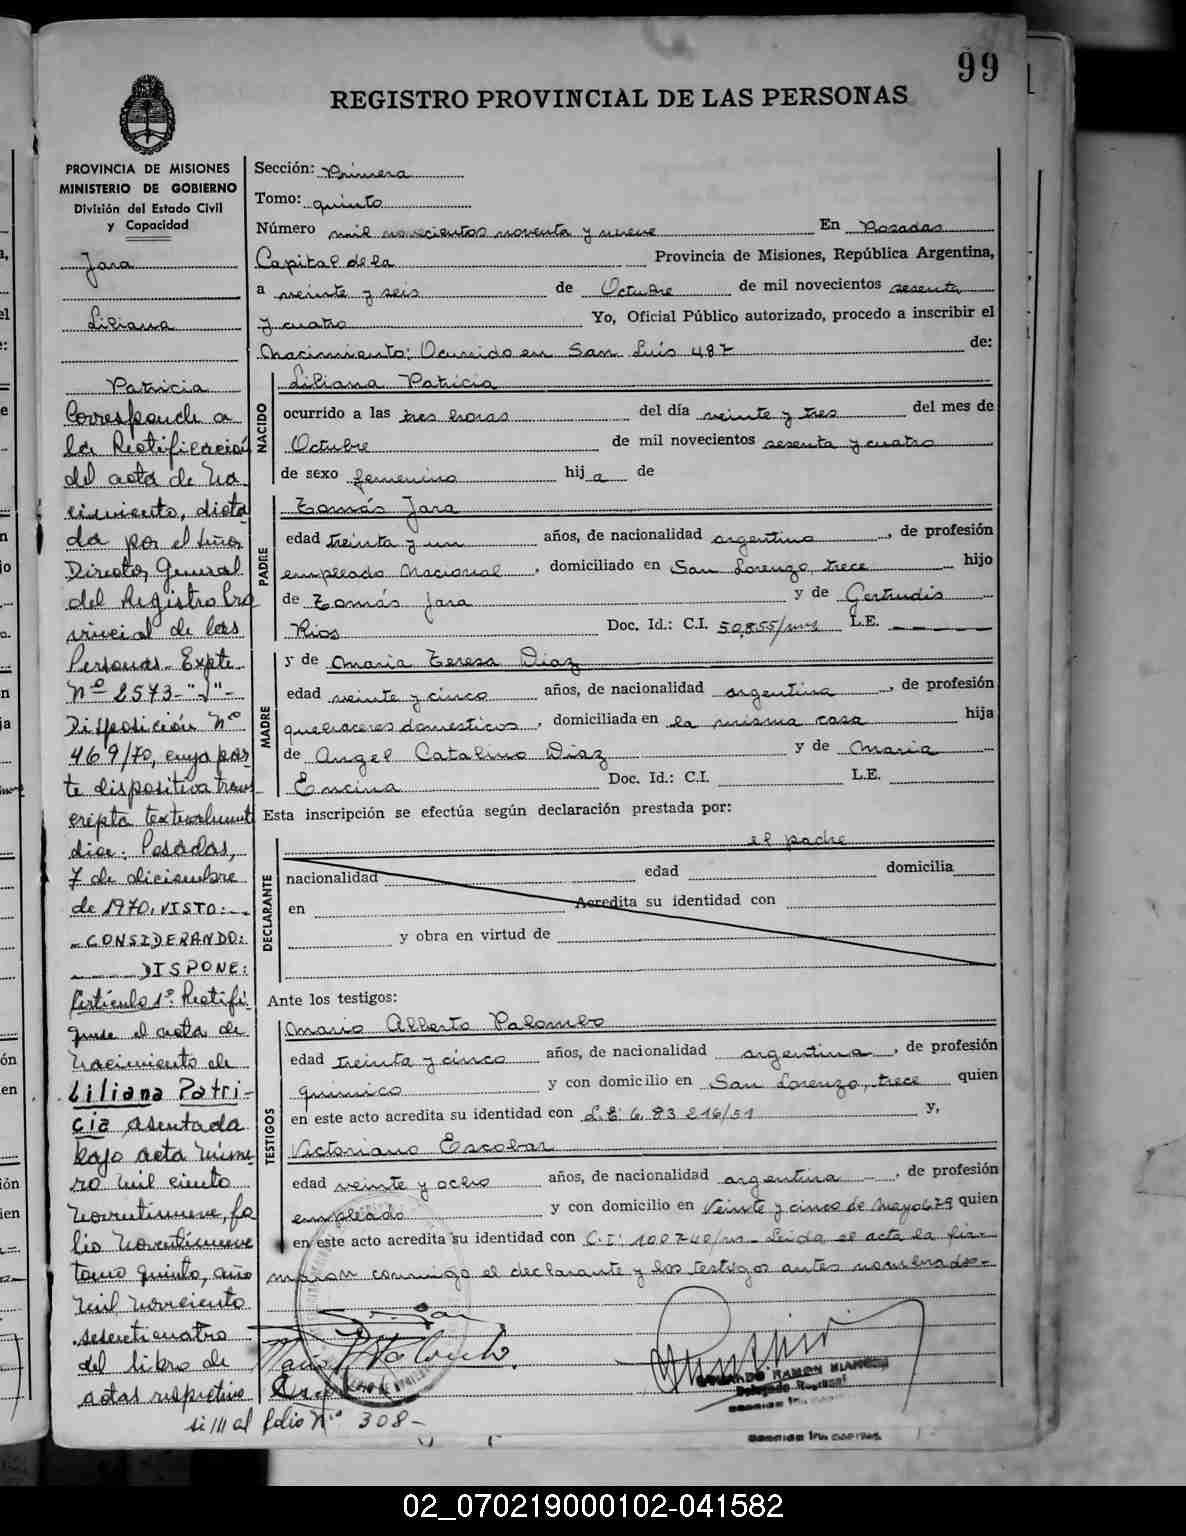 99
REGISTRO PROVINCIAL DE LAS PERSONAS
PROVINCIA DE MISIONES
MINISTERIO DE GOBIERNO
División del Estado Civil
y Capacidad
Jara
Liliana
Patricia
Corresponde a
la Rectificación
del acta de na-
cimiento, dicta-
da por el Señor
Director General
del Registro Pro
vincial de las
Personas. Expte
Nº 2573-"J"-
Disposición Nº
469/70, cuya par-
te dispositiva trans
cripta textualmente
dice: Posadas,
7 de diciembre
de 1970. VISTO:
CONSIDERANDO:
DISPONE:
Artículo 1º: Rectifí
quese el acta de
nacimiento de
Liliana Patri-
cia asentada
bajo acta núme-
ro mil ciento
noventinueve, fo
lio noventinueve
tomo quinto, año
mil noveciento
sesenticuatro
del libro de
actas respectivo
si///al folio Nº 308-
Sección: Primera
Tomo: quinto
Número mil novecientos noventa y nueve En Posadas
Capital de la Provincia de Misiones, República Argentina,
a veinte y seis de Octubre de mil novecientos sesenta
y cuatro Yo, Oficial Público autorizado, procedo a inscribir el
Nacimiento: Ocurrido en San Luis 487 de:
NACIDO
Liliana Patricia
ocurrido a las tres horas del día veinte y tres del mes de
Octubre de mil novecientos sesenta y cuatro
de sexo femenino hija de
PADRE
Tomás Jara
edad treinta y un años, de nacionalidad argentina, de profesión
empleado Nacional, domiciliado en San Lorenzo, trece hijo
de Tomás Jara y de Gertrudis
Rios Doc. Id.: C.I. 50855/mns L.E.
MADRE
y de Maria Teresa Diaz
edad veinte y cinco años, de nacionalidad argentina, de profesión
quehaceres domesticos, domiciliada en la misma casa hija
de Angel Catalino Diaz y de Maria
Encina Doc. Id.: C.I. L.E.
Esta inscripción se efectúa según declaración prestada por:
DECLARANTE
el padre
nacionalidad edad domicilia
en Acredita su identidad con
y obra en virtud de
Ante los testigos:
TESTIGOS
Mario Alberto Palombo
edad treinta y cinco años, de nacionalidad argentina, de profesión
quimico y con domicilio en San Lorenzo, trece quien
en este acto acredita su identidad con L.E: 6.93 216/51 y,
Victoriano Escobar
edad veinte y ocho años, de nacionalidad argentina, de profesión
empleado y con domicilio en Veinte y cinco de Mayo 679 quien
en este acto acredita su identidad con C.I: 100740/m. Leida el acta la fir-
maron conmigo el declarante y los testigos antes nombrados-
RAMON
Delegado Regional
02_070219000102-041582